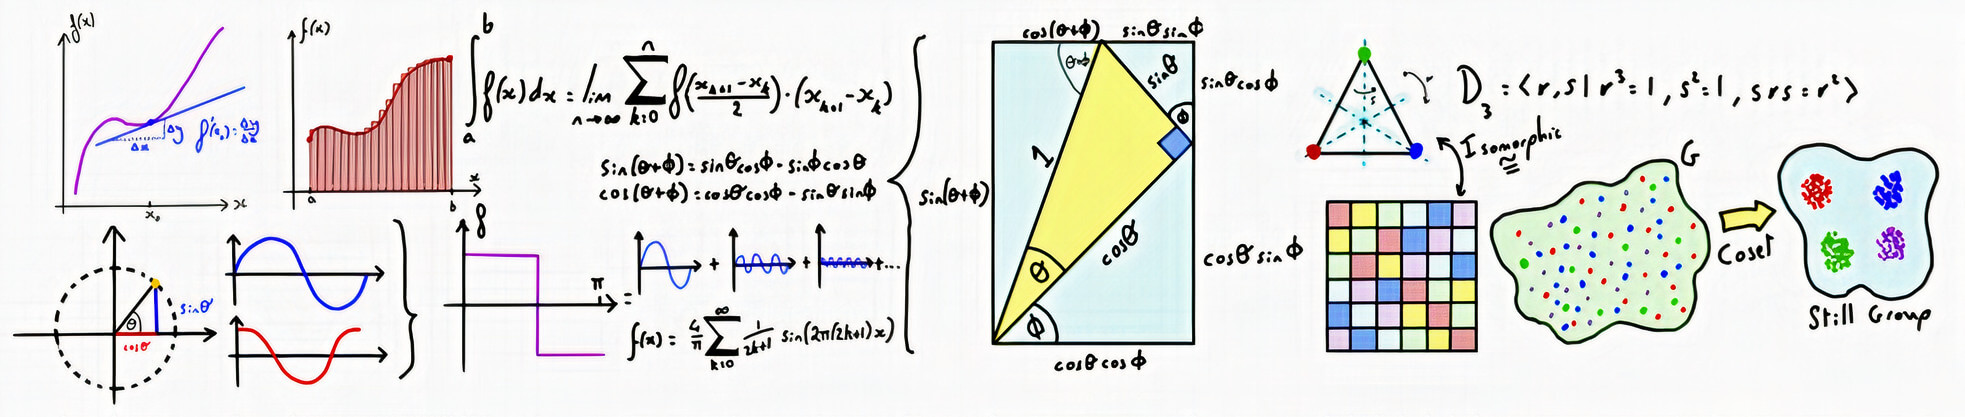 f(x)
Δy
Δx
f'(x₀) = Δy/Δx
x₀
x
f(x)
a
b
x
∫ₐᵇ f(x) dx = lim n→∞ ∑ₖ₌₀ⁿ f((xₖ₊₁ - xₖ)/2) · (xₖ₊₁ - xₖ)
sin(θ+ϕ) = sinθcosϕ - sinϕcosθ
cos(θ+ϕ) = cosθcosϕ - sinθsinϕ
θ
sinθ
cosθ
f
π
= + + + ...
f(x) = 4/π ∑ₖ₌₀^∞ 1/(2k+1) sin(2π(2k+1)x)
cos(θ+ϕ)
sinθsinϕ
θ+ϕ
sinθ
sinθcosϕ
ϕ
1
sin(θ+ϕ)
cosθ
cosθsinϕ
θ
ϕ
cosθcosϕ
r
s
D₃ = ⟨r,s | r³=1, s²=1, srs=r²⟩
Isomorphic
≅
G
Coset
Still Group